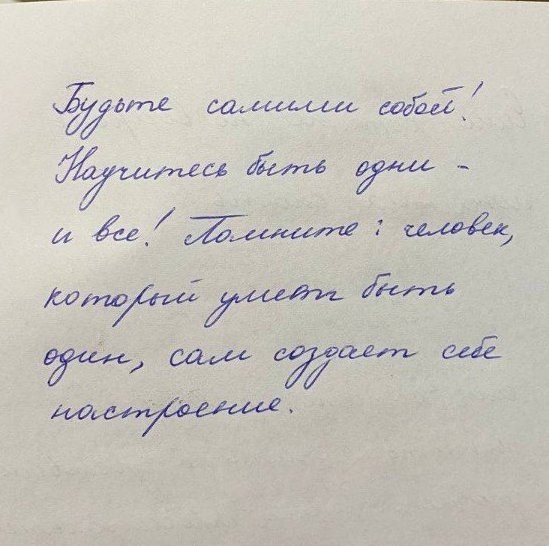 Будьте самими собой!
Научитесь быть одни -
и все! Помните: человек,
который умеет быть
один, сам создает себе
настроение.